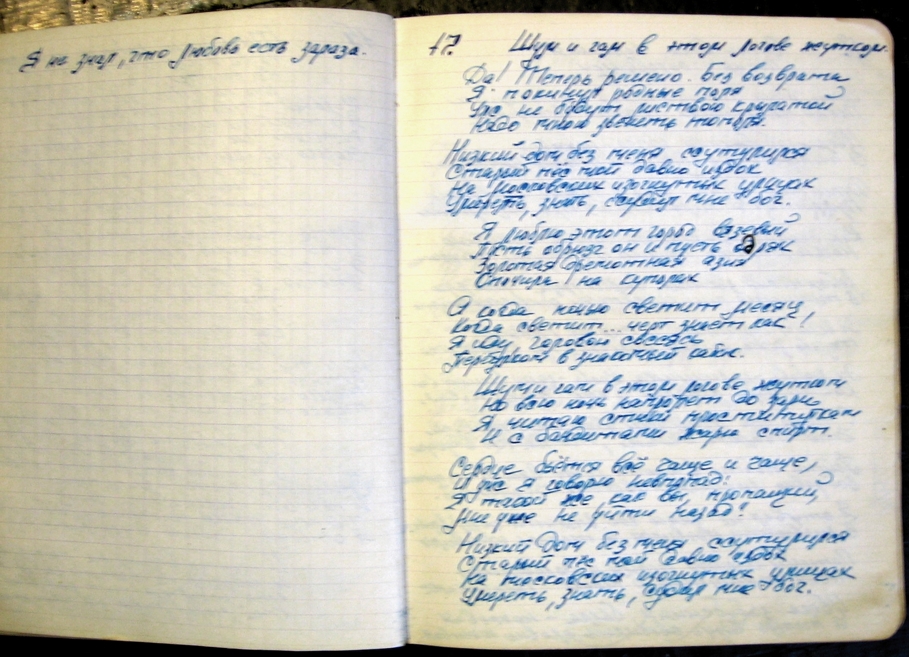 Я не знал, что любовь есть зараза.
17. Шум и гам в этом логове жутком.
Да! Теперь решено. Без возврата
Я покинул родные поля
Уж не будут листвою крылатой
Надо мною звенеть тополя.
Низкий дом без меня ссутулился
Старый пёс мой давно издох
На московских изогнутых улицах
Умереть, знать, судил мне бог.
Я люблю этот город вязевый
Пусть обрюзг он и пусть одрях
Золотая дремотная азия
Опочила на куполах
А когда ночью светит месяц,
Когда светит... черт знает как!
Я иду, головою свесясь
Переулком в знакомый кабак.
Шум и гам в этом логове жутком
Но всю ночь напролёт до зари
Я читаю стихи проституткам
И с бандитами жарю спирт.
Сердце бьётся всё чаще и чаще,
И уж я говорю невпопад:
Я такой же, как вы, пропащий,
Мне уже не уйти назад!
Низкий дом без меня ссутулился
Старый пёс мой давно издох
На московских изогнутых улицах
Умереть, знать, судил мне бог.